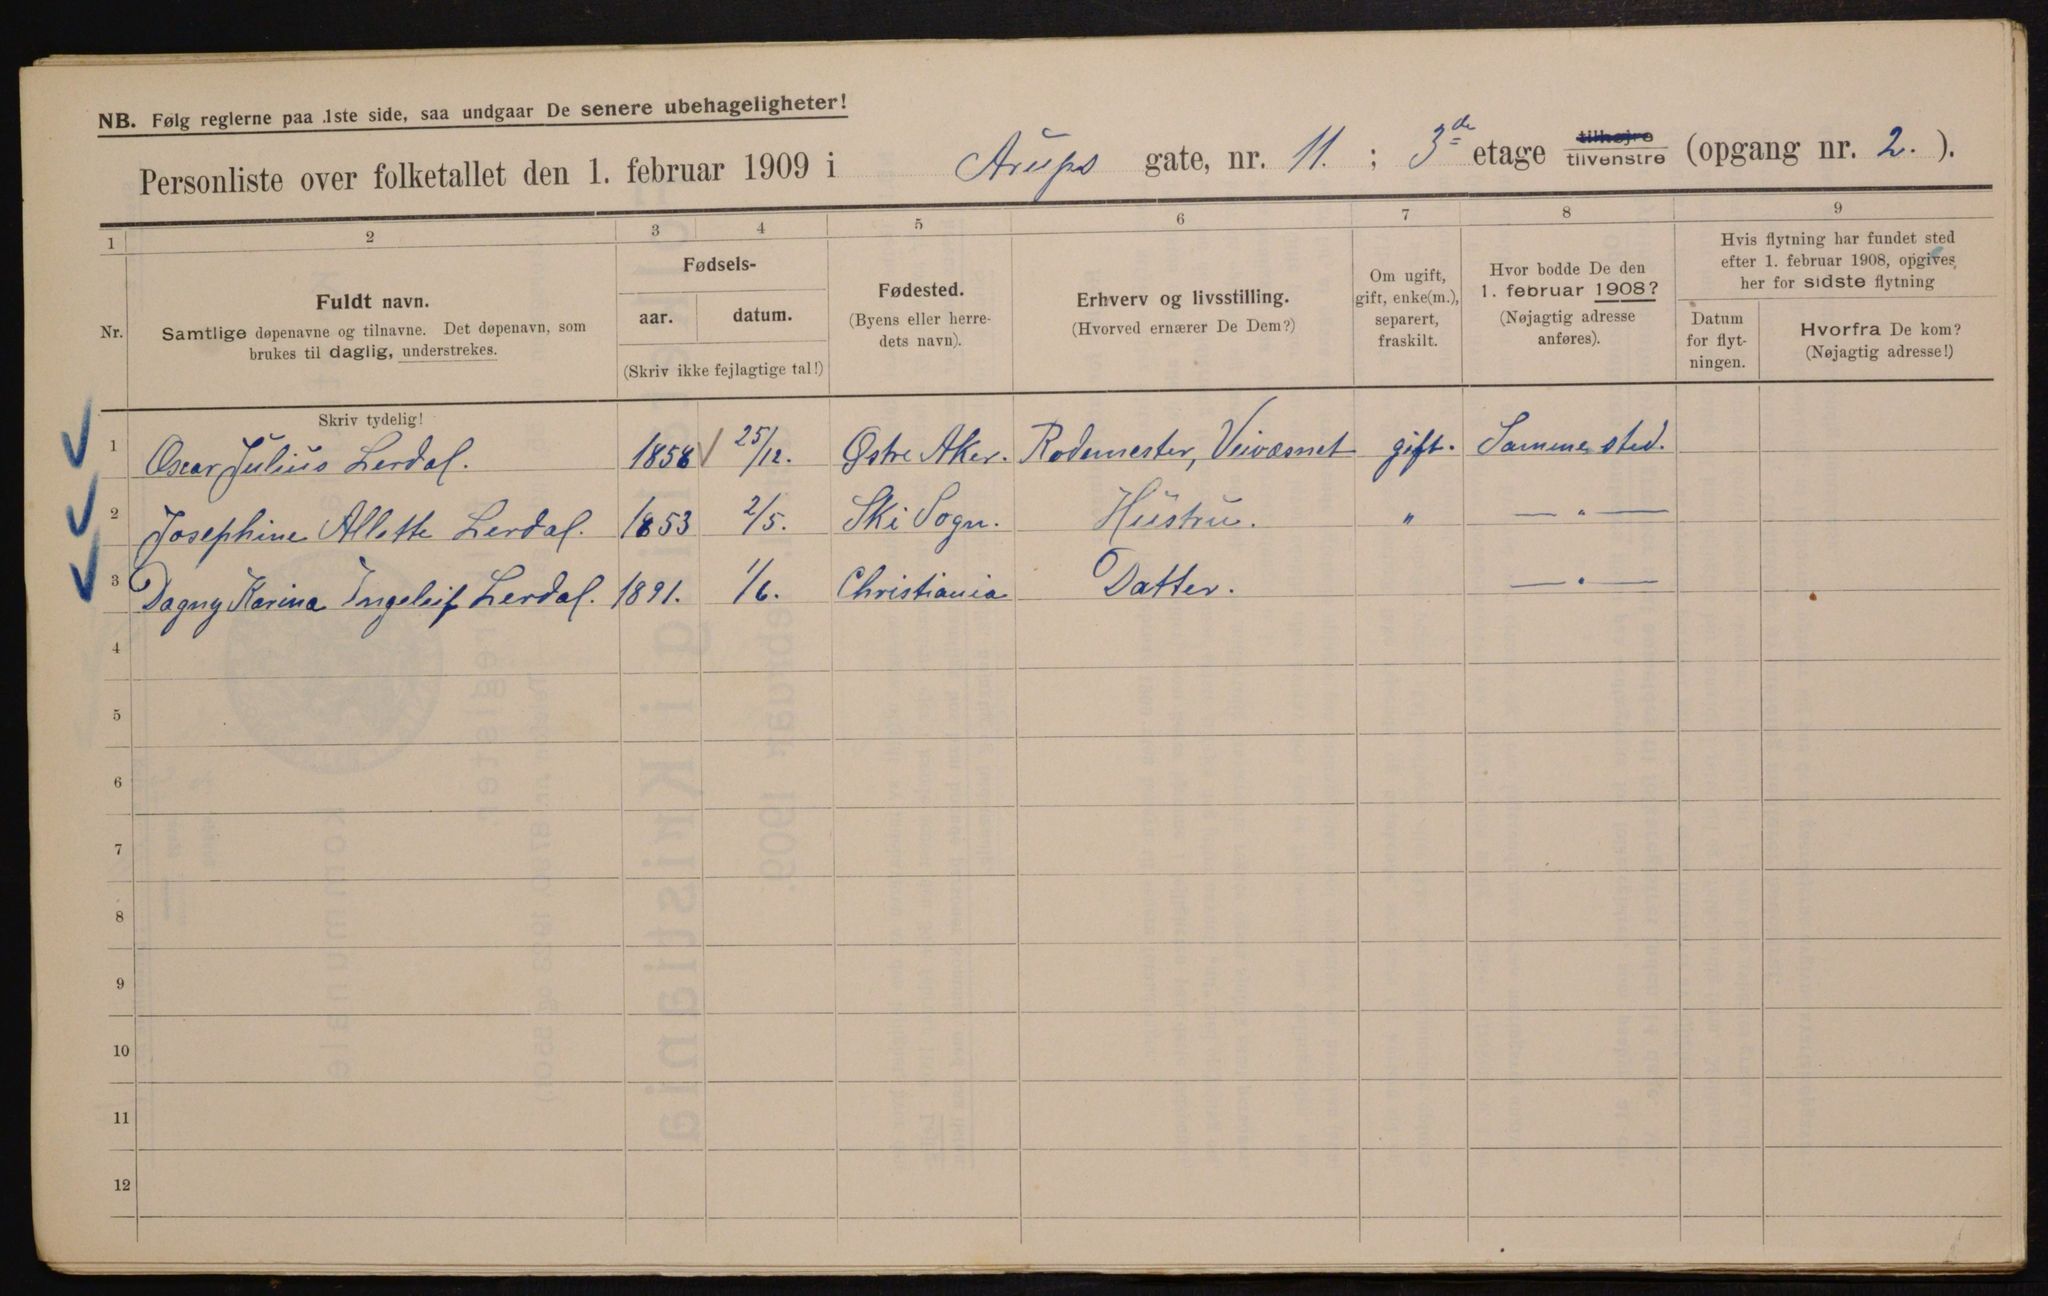 NB. Følg reglerne paa 1ste side, saa undgaar De senere ubehageligheter!
Personliste over folketallet den 1. februar 1909 i Arups gate, nr. 11. ; 3de etage tilhøjre tilvenstre (opgang nr. 2. ).
1 2 3 4 5 6 7 8 9
Nr.
Fuldt navn.
Samtlige døpenavne og tilnavne. Det døpenavn, som
brukes til daglig, understrekes.
Fødsels-
aar. datum.
(Skriv ikke fejlagtige tal!)
Fødested.
(Byens eller herre-
dets navn).
Erhverv og livsstilling.
(Hvorved ernærer De Dem?)
Om ugift,
gift, enke(m.),
separert,
fraskilt.
Hvor bodde De den
1. februar 1908?
(Nøjagtig adresse
anføres).
Hvis flytning har fundet sted
efter 1. februar 1908, opgives
her for sidste flytning
Datum
for flyt-
ningen.
Hvorfra De kom?
(Nøjagtig adresse!)
Skriv tydelig!
1 Oscar Julius Lerdal. 1858 25/12. Østre Aker. Rodemester, Veivæsnet gift. Samme sted.
2 Josephine Allette Lerdal. 1853 2/5. Ski Sogn. Hustru. " — " —
3 Dagny Karina Ingeleif Lerdal. 1891. 1/6. Christiania Datter. — " —
4
5
6
7
8
9
10
11
12